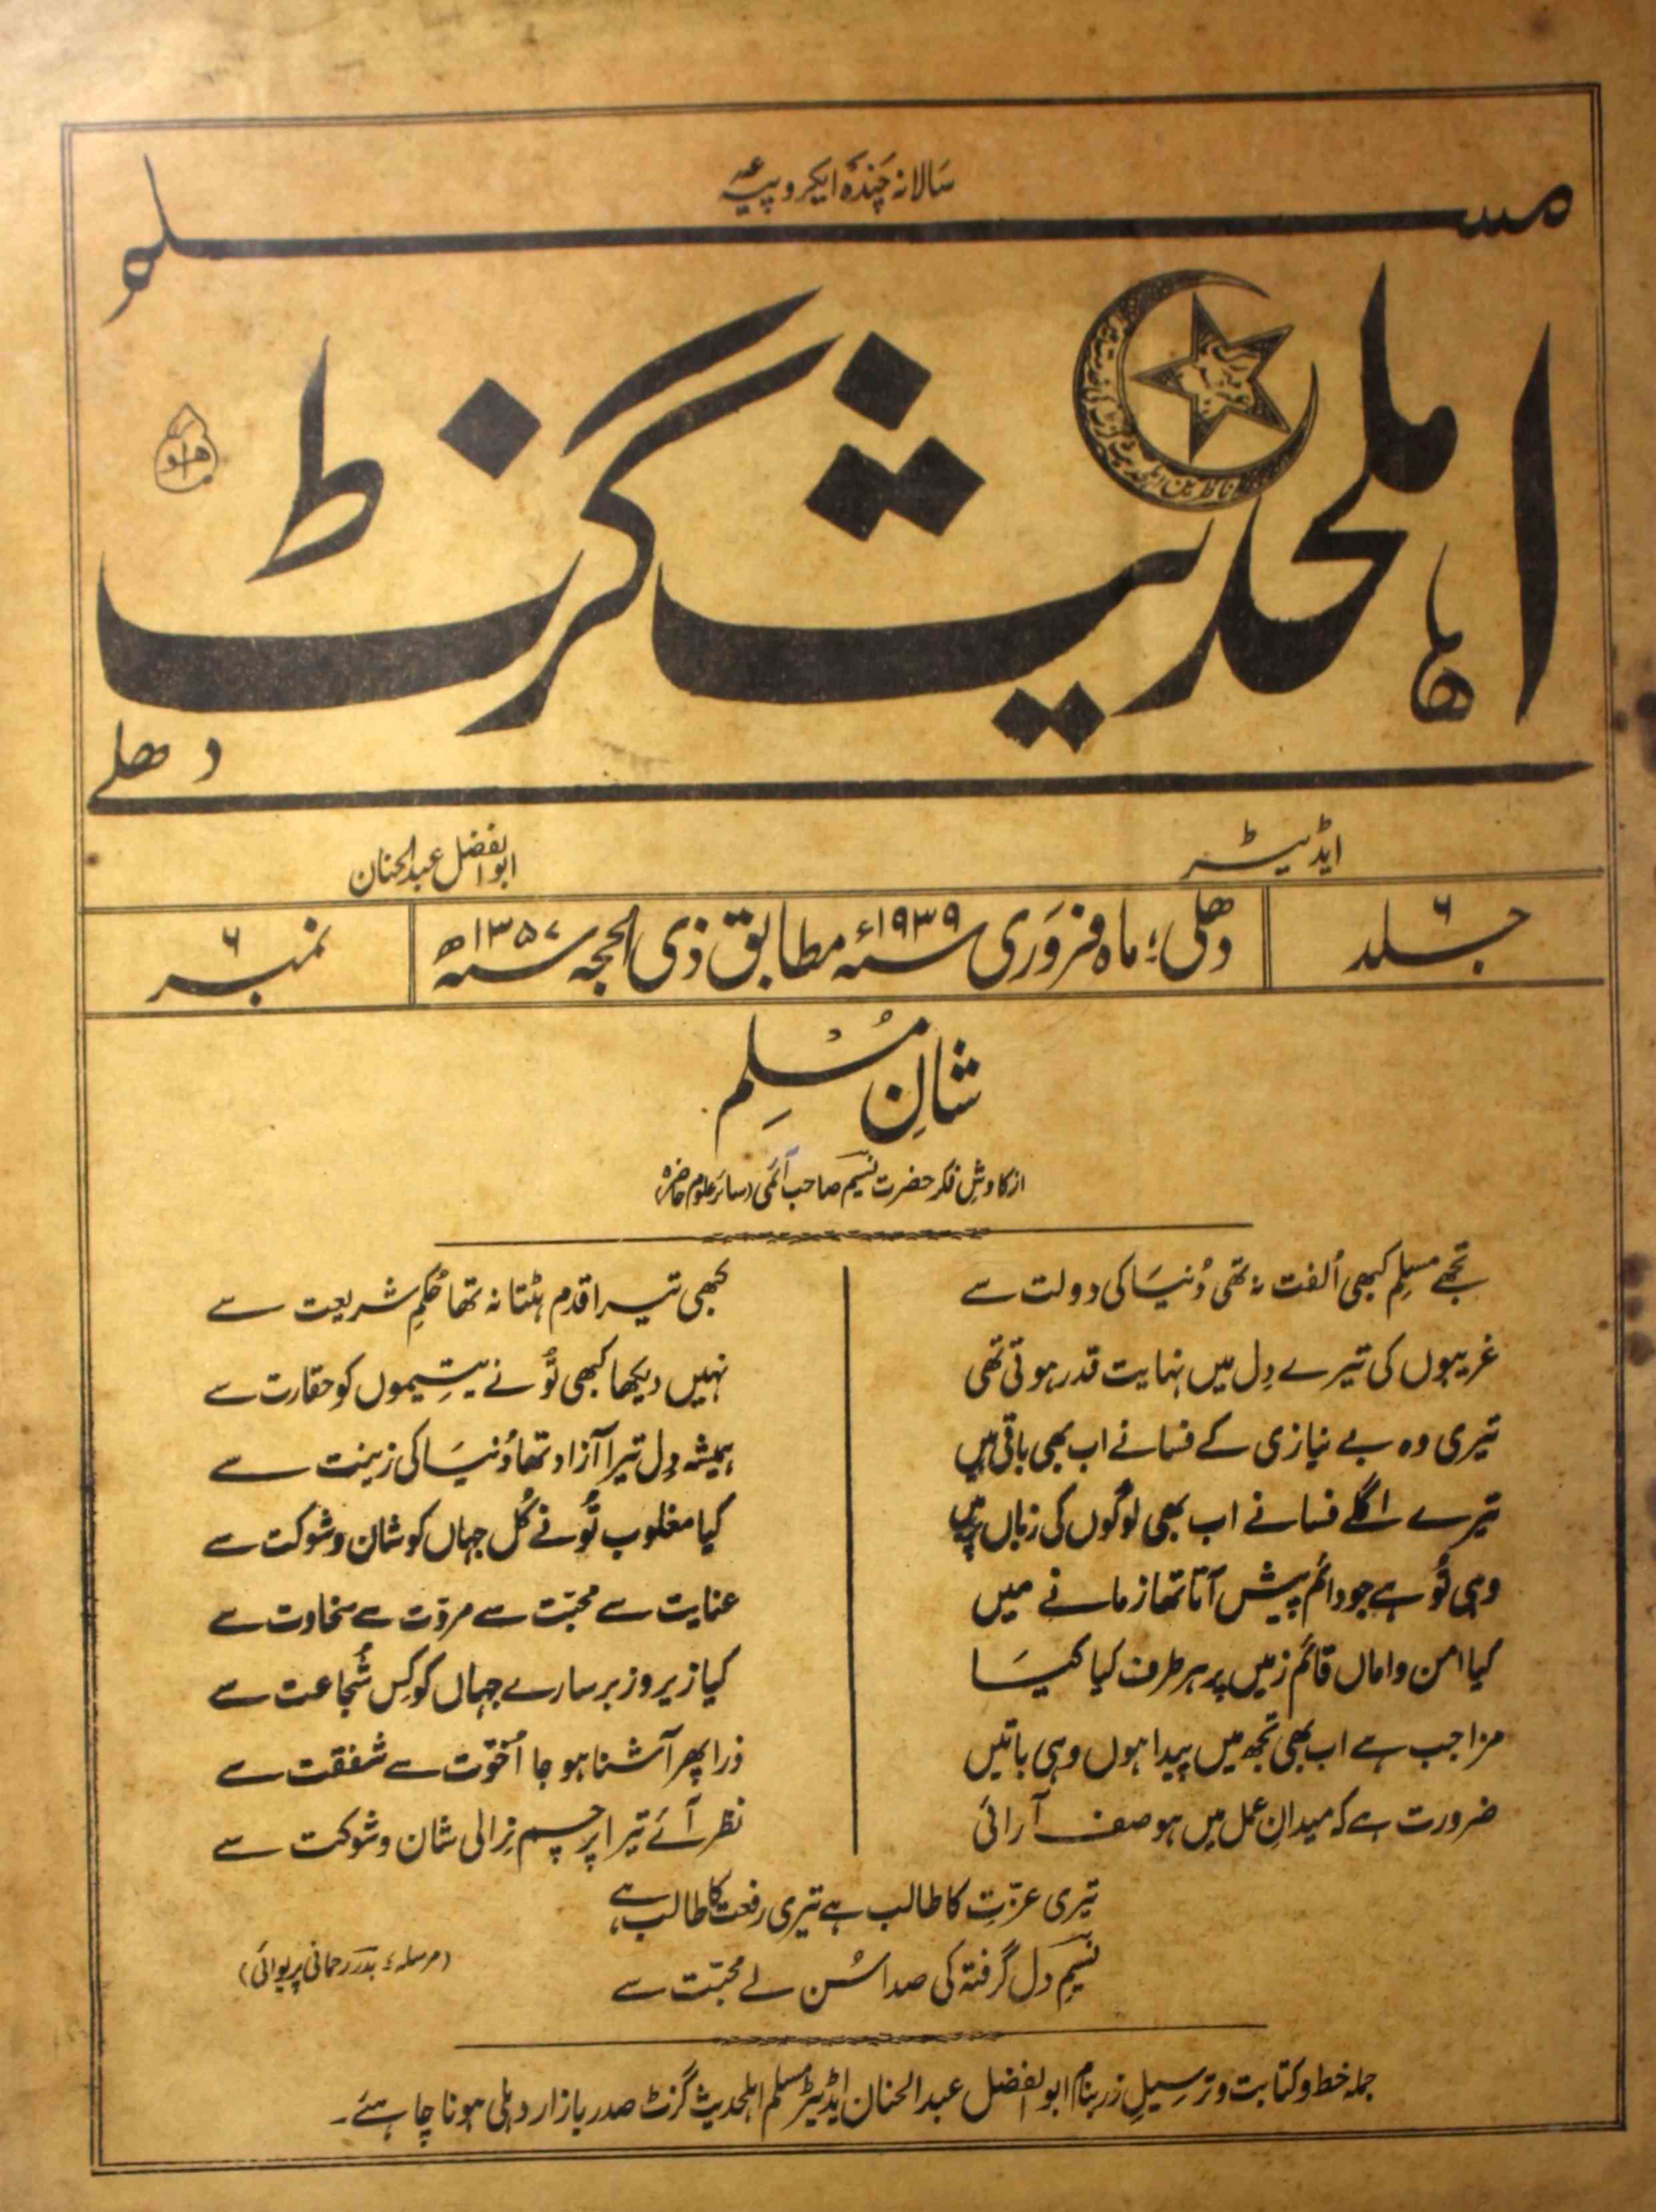 سالانہ چندہ ایکروپیہ
مسلم
اہلحدیث گزٹ
ماہوار
دھلی
ایڈیٹر
ابوالفضل عبدالحنان
جلد ۶
دھلی؛ ماہ فروَری سنہ ۱۹۳۹ء مطابق ذی الحجہ سنہ ۱۳۵۷ھ
نمبر ۶
شانِ مُسْلِم
از کاوشِ فکر حضرت نسیم صاحب آئمی (سائر علوم حاضرہ)
تجھے مسلم کبھی اُلفت نہ تھی دُنیَا کی دولت سے
کبھی تیرا قدم ہٹتا نہ تھا حُکمِ شریعت سے
غریبوں کی تیرے دِل میں نہایت قدر ہوتی تھی
نہیں دیکھا کبھی تُو نے یتیموں کو حقارت سے
تیری وہ بے نیازی کے فسانے اب بھی باقی ہیں
ہمیشہ دِل تیرا آزاد تھا دُنیَا کی زینت سے
تیرے اگلے فسانے اب بھی لوگوں کی زباں پر ہیں
کیا مغلوب تُو نے کُل جہاں کو شان و شوکت سے
وہی تُو ہے جو دائم پیش آتا تھا زمانے میں
عنایت سے محبّت سے مروّت سے سخاوت سے
کیا امن و اماں قائم زمیں پر ہر طرف کیا کیسَا
کیا زیر و زبر سارے جہاں کو کِس شُجاعت سے
مزا جب ہے اب بھی تجھ میں پیدا ہوں وہی باتیں
ذرا پھر آشنا ہو جا اُخوّت سے شفقت سے
ضرورت ہے کہ میدانِ عمل میں ہو صف آرائی
نظر آئے تیرا پرچم نِرالی شان و شوکت سے
تیری عزّت کا طالب ہے تیری رفعت کا طالب ہے
نسیمِ دل گرفتہ کی صدا سُن لے محبّت سے
(مرسلہ؛ بدرؔ رحمانی پریوائی)
جملہ خط و کتابت و ترسیلِ زر بنام ابوالفضل عبدالحنان ایڈیٹر مسلم اہلحدیث گزٹ صدر بازار دہلی ہونا چاہئے۔